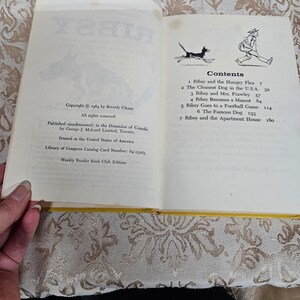 Copyright © 1964 by Beverly Cleary
All rights reserved.
Published simultaneously in the Dominion of Canada
by George J. McLeod Limited, Toronto.
Printed in the United States of America
Library of Congress Catalog Card Number: 64-13263
Weekly Reader Book Club Edition
Contents
1 Ribsy and the Hungry Flea 7
2 The Cleanest Dog in the U.S.A. 32
3 Ribsy and Mrs. Frawley 57
4 Ribsy Becomes a Mascot 84
5 Ribsy Goes to a Football Game 114
6 The Famous Dog 133
7 Ribsy and the Apartment House 160